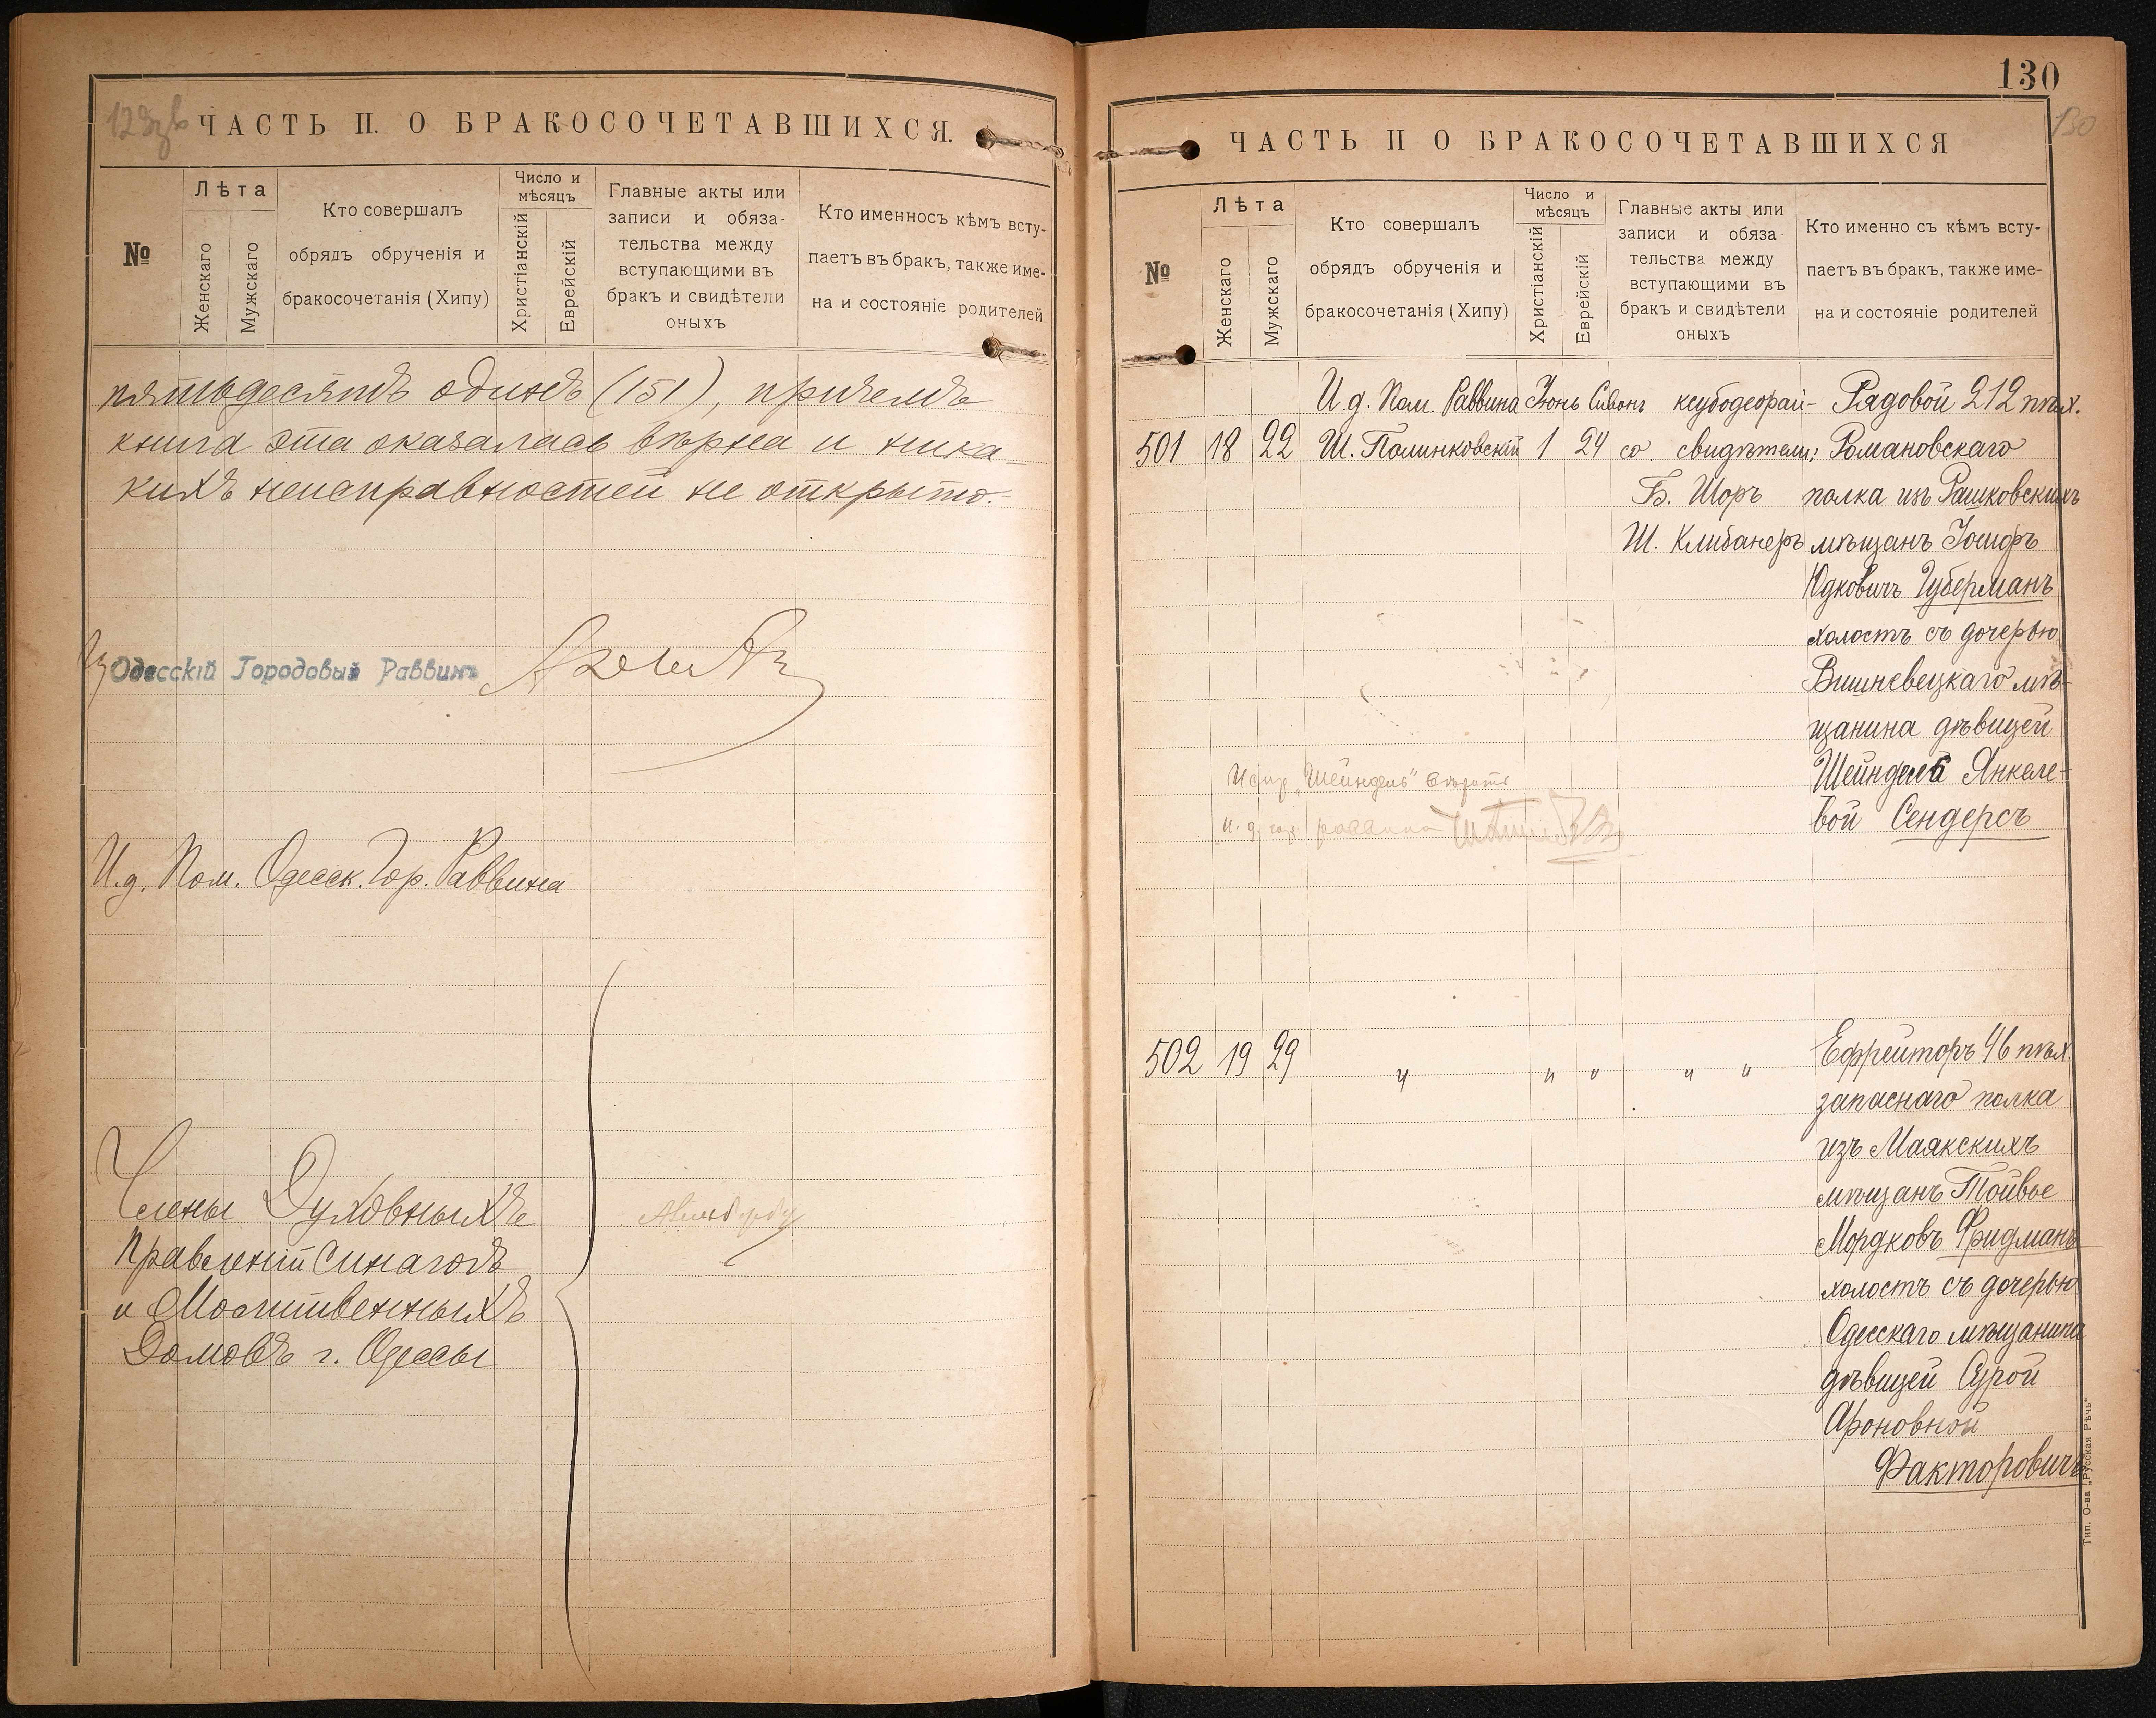 129зв
ЧАСТЬ II. О БРАКОСОЧЕТАВШИХСЯ.
№
Лѣта
Женскаго
Мужскаго
Кто совершалъ
обрядъ обрученія и
бракосочетанія (Хипу)
Число и
мѣсяцъ
Христіанскій
Еврейскій
Главные акты или
записи и обяза-
тельства между
вступающими въ
бракъ и свидѣтели
оныхъ
Кто именносъ кѣмъ всту-
паетъ въ бракъ, также име-
на и состояніе родителей
пятьдесятъ одинъ (151), причемъ
книга эта оказалась вѣрна и ника-
кихъ неисправностей не открыто.-
Одесскій Городовый Раввинъ
И.д. Пом. Одесск. Гор. Раввина
Члены Духовныхъ
Правленій Синагогъ
и Молитвенныхъ
Домовъ г. Одессы
130
130
ЧАСТЬ II О БРАКОСОЧЕТАВШИХСЯ
№
Лѣта
Женскаго
Мужскаго
Кто совершалъ
обрядъ обрученія и
бракосочетанія (Хипу)
Число и
мѣсяцъ
Христіанскій
Еврейскій
Главные акты или
записи и обяза-
тельства между
вступающими въ
бракъ и свидѣтели
оныхъ
Кто именно съ кѣмъ всту-
паетъ въ бракъ, также име-
на и состояніе родителей
И.д. Пом. Раввина Іюнь Сивонъ ксубодеорай- Рядовой 212 пѣх.
501 18 22 Ш. Полинковскій 1 24 со свидѣтели: Романовскаго
Б. Шоръ полка изъ Рашковскихъ
Ш. Клибанеръ мѣщанъ Іосифъ
Юдковичъ Губерманъ
холостъ съ дочерью
Вишневецкаго мѣ-
щанина дѣвицей
Шейндель Янкеле-
вой Сендерсъ
Испр. „Шейндель" вѣрить
и. д. гор. раввина
502 19 29 " " " " " Ефрейторъ 46 пѣх.
запаснаго полка
изъ Маякскихъ
мѣщанъ Тойвье
Мордковъ Фридманъ
холостъ съ дочерью
Одесскаго мѣщанина
дѣвицей Сурой
Ароновной
Факторовичъ
Тип. О-ва „Русская Рѣчь"